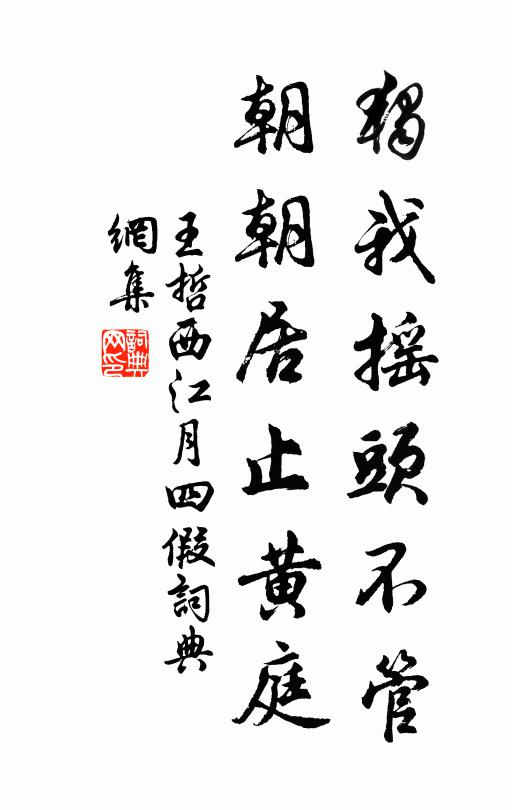 獨我摇頭不管
朝朝居止黄庭
王哲西江月四假詞典
網集
詞典
网印